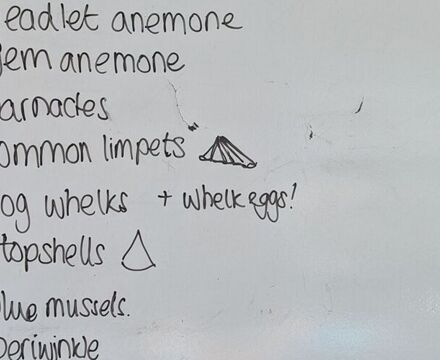 eadlet anemone
em anemone
arnacles
ommon limpets
og whelks + whelk eggs!
topshells
lue mussels.
periwinkle